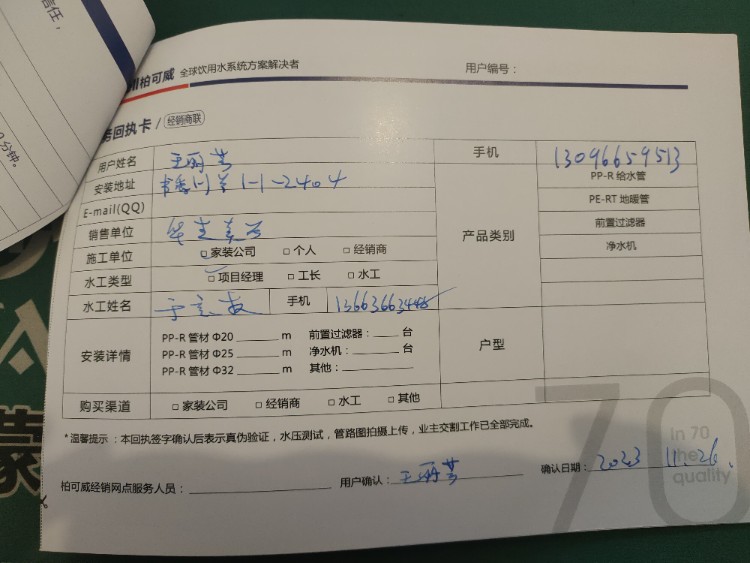 信任，
分钟。
柏可威 全球饮用水系统方案解决者 用户编号：
务回执卡 / 经销商联
用户姓名 王丽芳 手机 13096659513
安装地址 1-1-2404
E-mail(QQ)
销售单位
产品类别
PP-R 给水管
PE-RT 地暖管
前置过滤器
净水机
施工单位 □ 家装公司 □ 个人 □ 经销商
水工类型 □ 项目经理 □ 工长 □ 水工
水工姓名 手机
安装详情 户型
PP-R 管材 Φ20 ______ m 前置过滤器：____ 台
PP-R 管材 Φ25 ______ m 净水机：____ 台
PP-R 管材 Φ32 ______ m 其他：______
购买渠道 □ 家装公司 □ 经销商 □ 水工 □ 其他
*温馨提示：本回执签字确认后表示真伪验证，水压测试，管路图拍摄上传，业主交割工作已全部完成。
柏可威经销网点服务人员：______ 用户确认：王丽芳 确认日期：2023 11.26.
70
In 70
the
quality
蒙